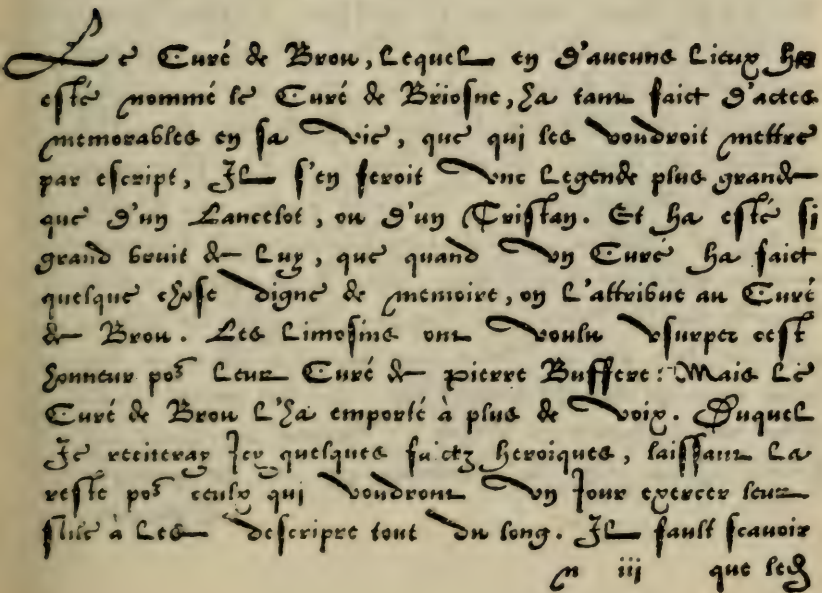 Le Curé de Brou, Lequel en d'aucuns Lieux ha
esté nommé le Curé de Briosne, ha tant faict d'actes
memorables en sa vie, que qui les voudroit mettre
par escript, Il s'en feroit vne Legende plus grande
que d'un Lancelot, ou d'un Tristan. Et ha esté si
grand bruit de Luy, que quand vn Curé ha faict
quelque chose digne de memoire, on L'attribue au Curé
de Brou. Les Limosins ont voulu vsurper cest
honneur pos Leur Curé de pierre Buffere: Mais Le
Curé de Brou L'ha emporté à plus de voix. Duquel
Je reciteray Icy quelques faictz heroiques, laissant La
reste pos ceulx qui voudront vn Jour exercer leur
stile à Les descripre tout du long. Il fault scauoir
n iii que led